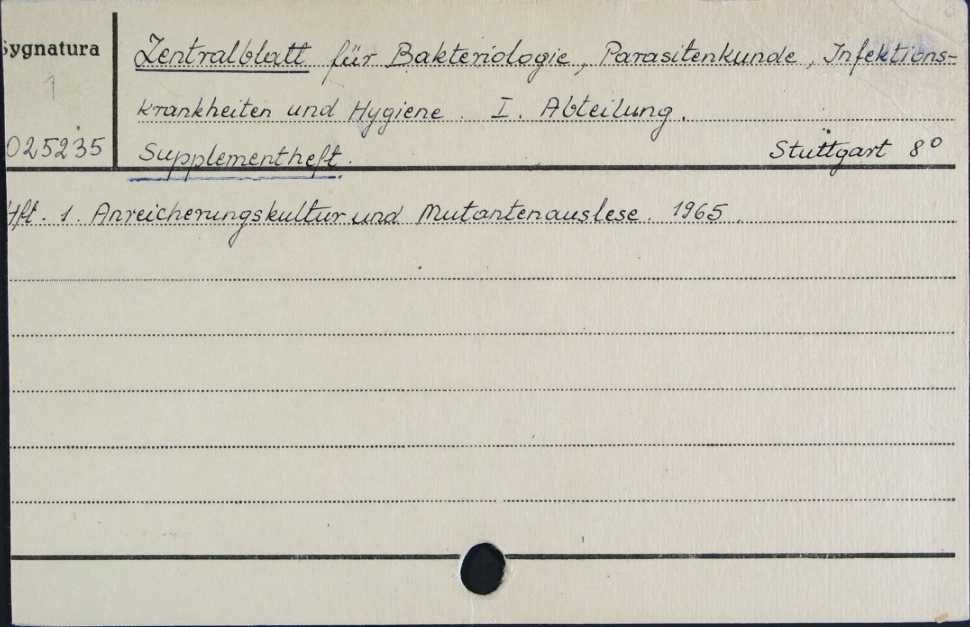 Sygnatura
1
025235
Zentralblatt für Bakteriologie, Parasitenkunde, Infektions-
krankheiten und Hygiene. I. Abteilung.
Supplementheft. Stuttgart 8°
Hft. 1. Anreicherungskultur und Mutantenauslese. 1965.